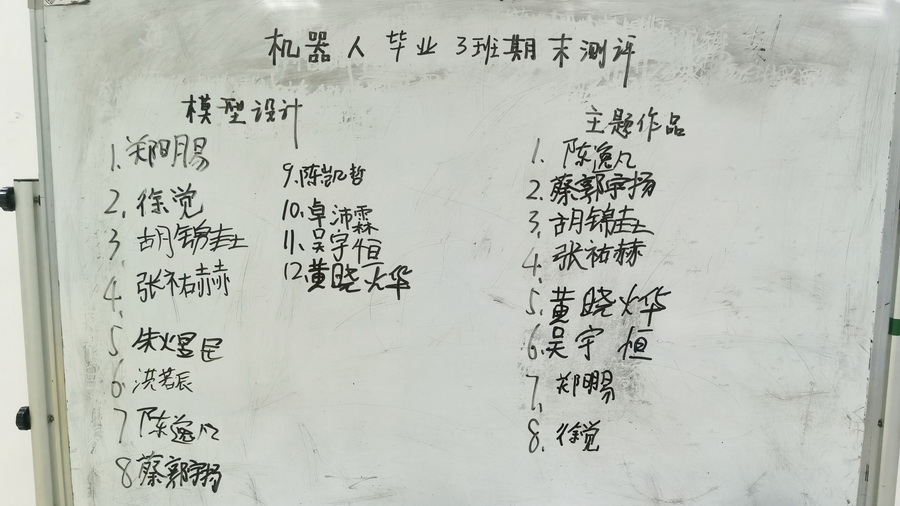 机器人毕业3班期末测评
模型设计
1.郑明赐
2.徐觉
3.胡锦圭
4.张祐赫
5.朱煜民
6.洪若辰
7.陈逸凡
8.蔡郭宇扬
9.陈凯哲
10.卓沛霖
11.吴宇恒
12.黄晓烨
主题作品
1.陈逸凡
2.蔡郭宇扬
3.胡锦圭
4.张祐赫
5.黄晓烨
6.吴宇恒
7.郑明赐
8.徐觉